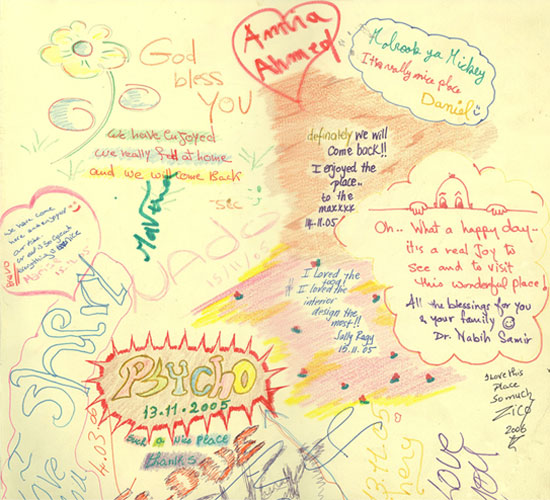 God
bless
YOU
Amira
Ahmed
Mabrook ya Mickey
It's really nice place
Daniel
we have enjoyed
we really felt at home
and we will come Back
definately we will
come back!!
I enjoyed the
place..
to the
maxxxx
14.11.05
Oh.. What a happy day..
it's a real Joy to
see and to visit
this wonderful place!
All the blessings for you
& your family
Dr. Nabih Samir
we have come
here and enjoyed
our time
Bravo
15/11/05
I loved the
food!
I loved the
interior
design the
most!!
Sally Ragy
15.11.05
sherry
PSYCHO
13.11.2005
such a nice place
thanks
4.03.06
I Love This
Place
So much
ZICO
2006
13.11.05
I
love
you